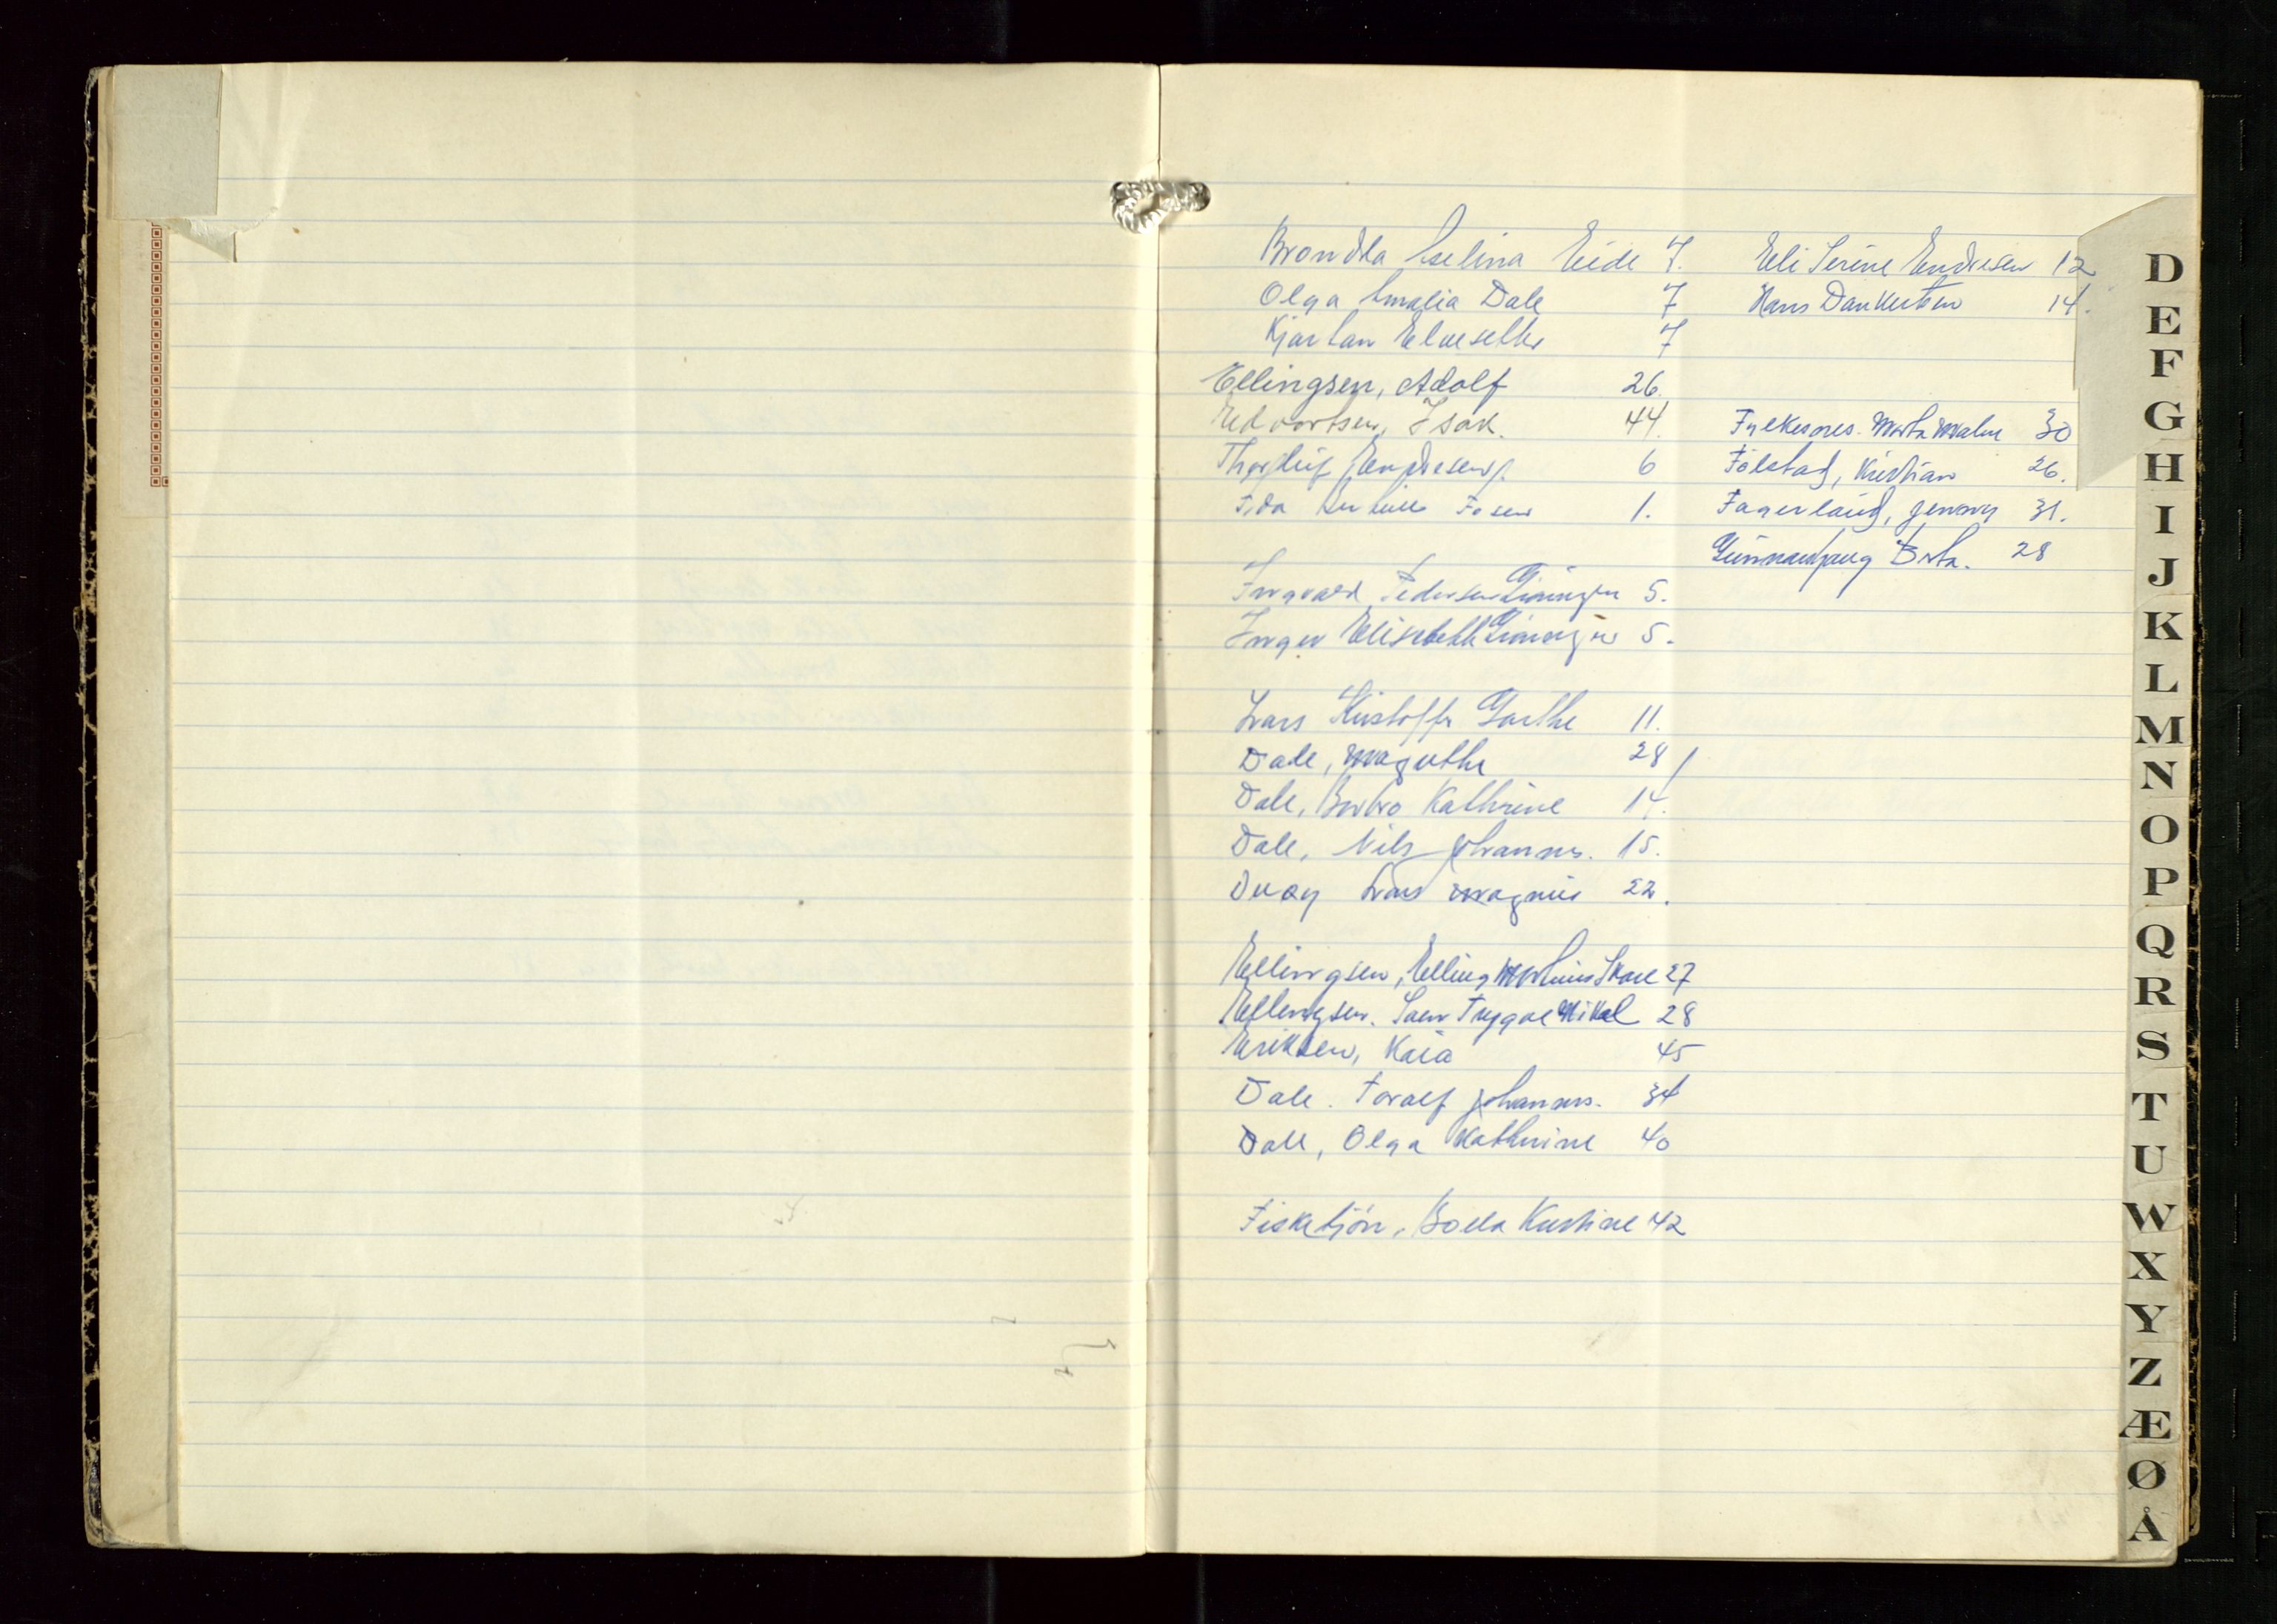 Brondla Selina Eide 7.
Olga Amalia Dale 7
Kjartan Elveseth 7
Ellingsen, Adolf 26.
Edvartsen, Isak. 44.
Endresen 6
Fosen 1.
Ingvard Pedersen 5.
Inger Elisabeth 5.
Lars Kristoffer Garthe 11.
Dale, Magnthe 28
Dale, Barbro Kathrine 14.
Dale, Nils Johannes. 15.
Lars Magnus 22.
Ellingsen, Elling Martinius Skare 27
Ellingsen. Trygve Mikal 28
Eriksen, Kaia 45
Dale. Toralf Johannes. 34
Dale, Olga Kathrine 40
Fisketjön, Kristine 42
Eli Serine Endresen 12
Hans Dankertsen 14.
Marta Malm 30
Folstad, Kristian 26.
Fagerland, Jenny 31.
28
D
E
F
G
H
I
J
K
L
M
N
O
P
Q
R
S
T
U
W
X
Y
Z
Æ
Ø
Å